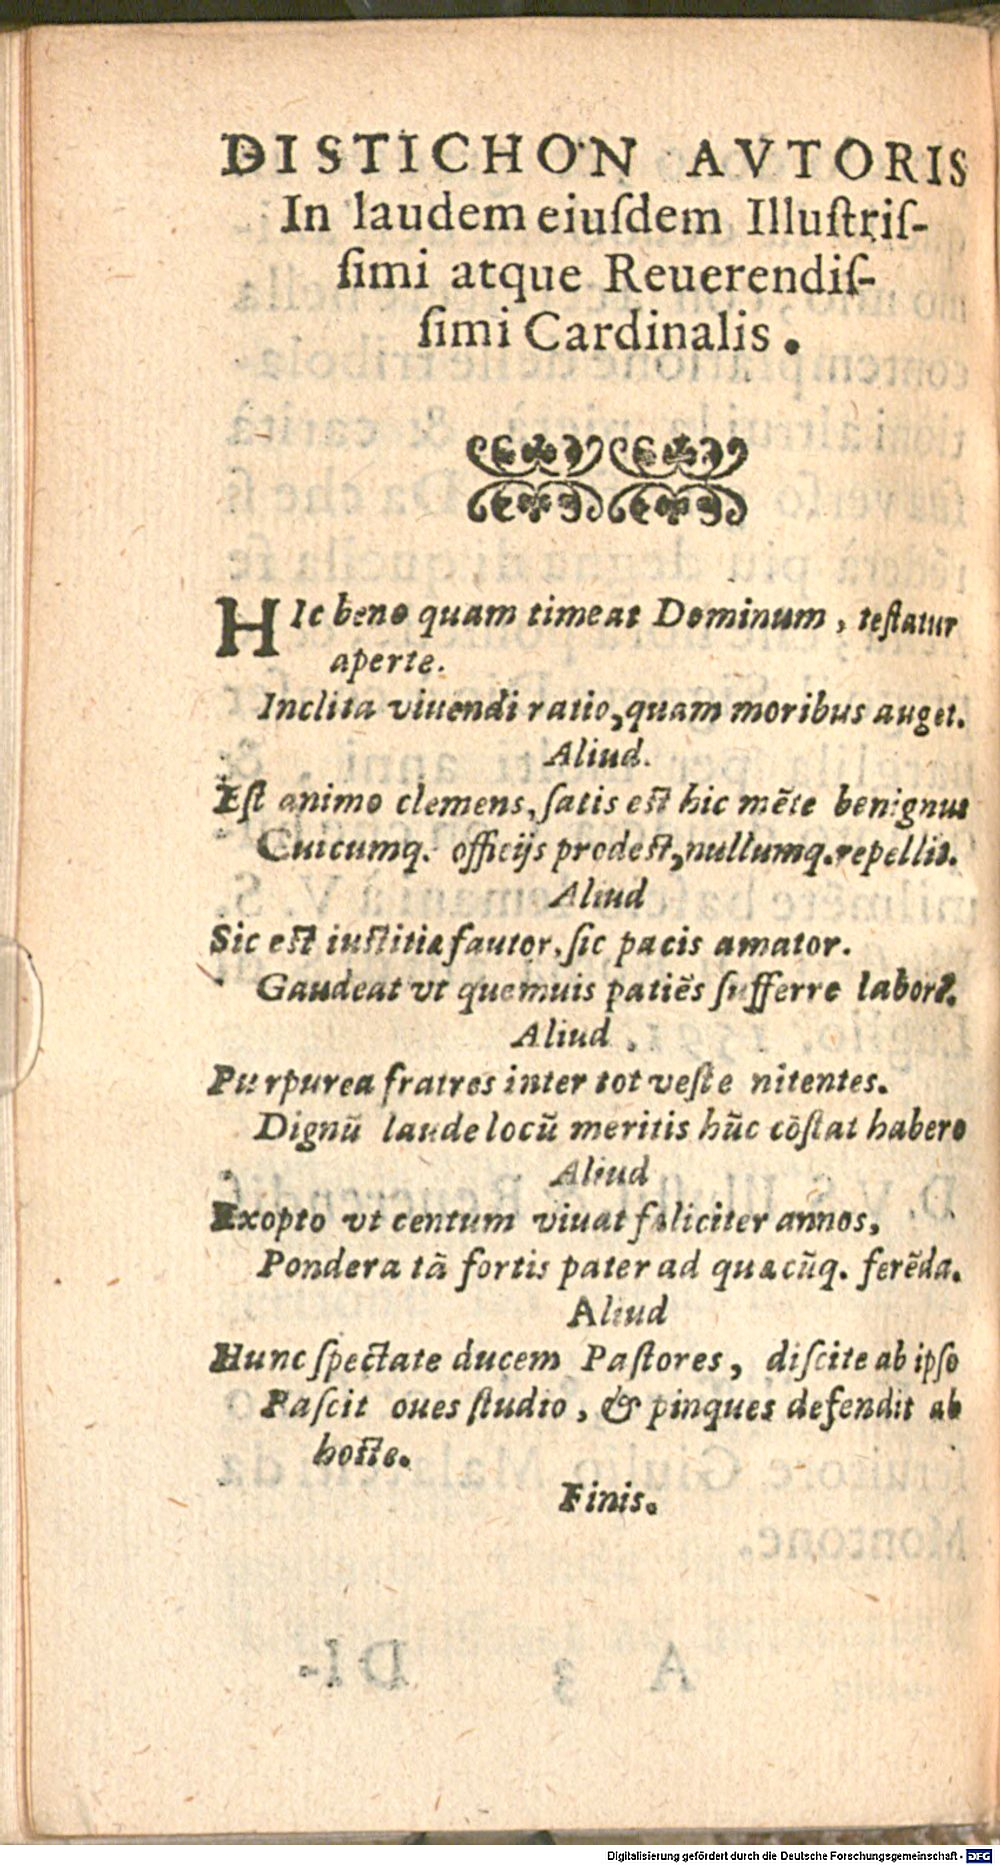 DISTICHON AVTORIS
In laudem eiuſdem Illuſtriſ-
ſimi atque Reuerendiſ-
ſimi Cardinalis.
HIc bene quam timeat Dominum, teſtatur
aperte.
Inclita viuendi ratio, quam moribus auget.
Aliud.
Eſt animo clemens, ſatis eſt hic mẽte benignus
Cuicumq. officijs prodeſt, nullumq. repellit.
Aliud
Sic eſt iuſtitiæ fautor, ſic pacis amator.
Gaudeat vt quemuis patiẽs ſufferre laborẽ.
Aliud.
Purpurea fratres inter tot veſte nitentes.
Dignũ laude locũ meritis hũc cõſtat habere
Aliud
Exopto vt centum viuat fæliciter annos,
Pondera tã fortis pater ad quæcũq. ferẽda.
Aliud
Hunc ſpectate ducem Paſtores, diſcite ab ipſo
Paſcit oues ſtudio, & pinques defendit ab
hoſte.
Finis.
Digitalisierung gefördert durch die Deutsche Forschungsgemeinschaft - DFG